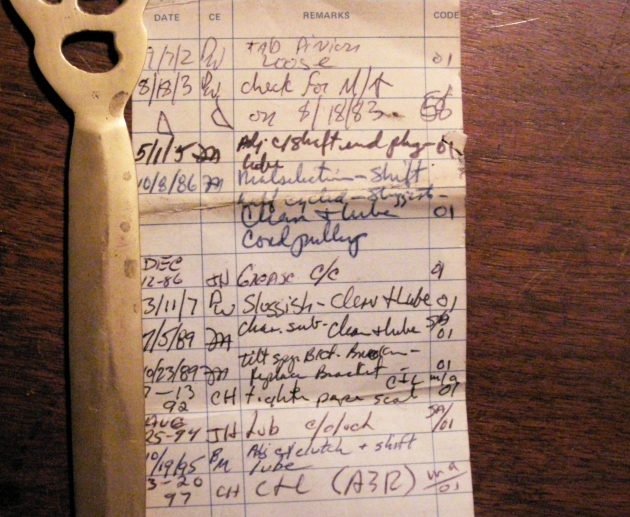 DATE CE REMARKS CODE
9/7/2 PW Tab Pinion
Loose 01
8/18/3 PW check for M/A
on 8/18/83
5/1/5 Adj. c/shift end play - 01
lube
10/8/86 Malselection - Shift
half cycled - Sluggish -
Clean + Lube 01
Cord pulley
DEC
12-86 JH GREASE C/C 01
3/11/7 PW Sluggish - Clean + Lube 01
7/5/89 Char. sub - Clean + Lube 01
tilt spg. Brkt. Broken -
10/23/89 Replace Bracket - 01
7-13 CH tighten paper scale 01
92
AUG
25-94 JH Lub c/cluch /01
10/19/95 BM Adj c/clutch + shift
lube
3-20 CH C+L (A3R) ma/01
97